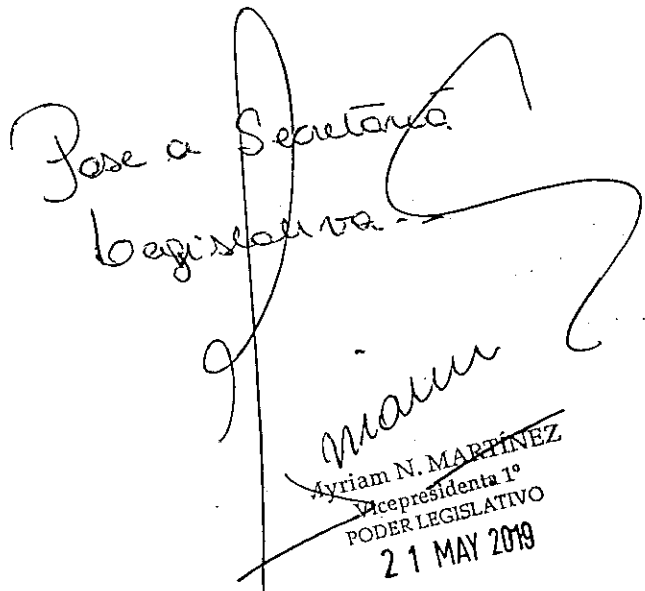 Pase a Secretaría
Legislativa.-
Myriam N. MARTÍNEZ
Vicepresidenta 1°
PODER LEGISLATIVO
21 MAY 2019